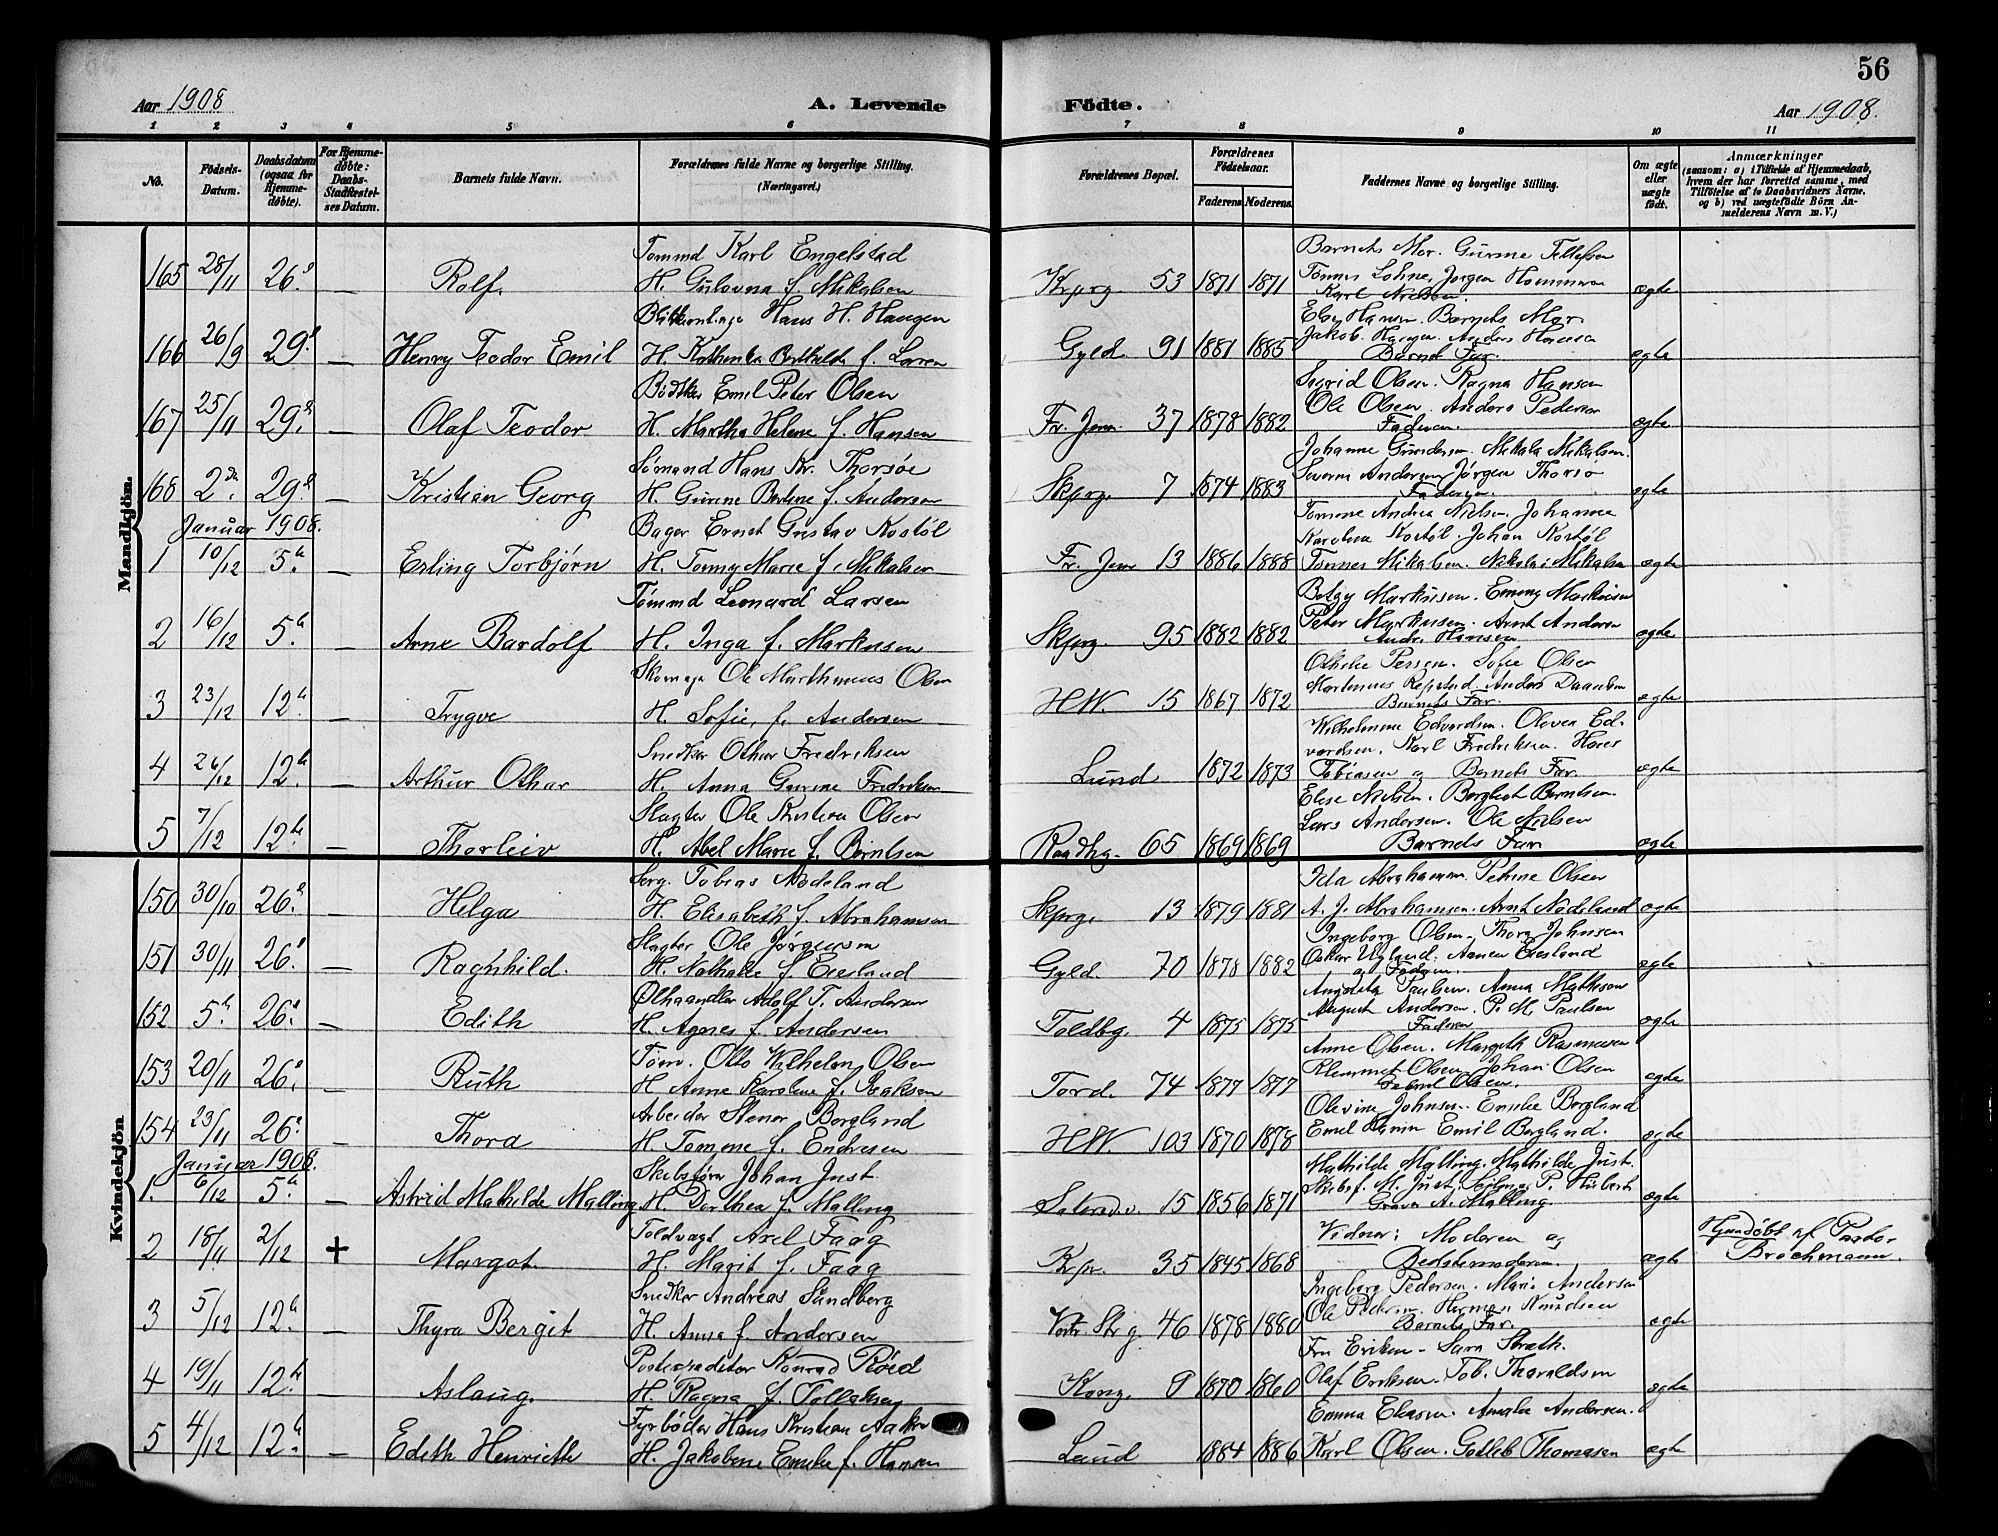 56
Aar 1908
A. Levende
Födte.
Aar 1908.
1 2 3 4 5 6 7 8 9 10 11
No.
Födsels-Datum.
Daabsdatum (ogsaa for Hjemmedøbte).
For Hjemmedøbte: Daabs-Stadfæstelses Datum.
Barnets fulde Navn.
Forældrenes fulde Navne og borgerlige Stilling. (Næringsvei.)
Forældrenes Bopæl.
Forældrenes Födselsaar.
Faderens Moderens
Faddernes Navne og borgerlige Stilling.
Om ægte eller uægte födt.
Anmærkninger
(saasom: a) i Tilfælde af Hjemmedaab, hvem der har forrettet samme, med Tilföielse af to Daabsvidners Navne, og b) ved uægtefödte Börn Anmelderens Navn m. V.)
Mandkjön.
Tømmd Karl Engelstad
Barnets Mor. Gurine Tellefsen
165 28/11 26. — Rolf. H. Gulovna f. Mikalsen Kprg. 53 1871 1871 Tønnes Lohne, Jørgen ægte
Karl Nielsen.
Hans H. Haugen
Hansen. Barnets Mor.
166 26/9 29. — Henry Teodor Emil H. f. Larsen Gyld. 91 1881 1885 Jakob Anders Hansen ægte
Barnets Far.
Bødtker Emil Peter Olsen
Sigrid Olsen. Ragna Hansen
167 25/11 29. — Olaf Teodor H. Martha Helene f. Hansen Fr. Jem. 37 1878 1882 Ole Olsen. Anders Pedersen ægte
Faderen.
Sømand Hans Kr. Thorsøe
Johanne Gundersen. Mikala Mikalsen.
168 2 29. — Kristian Georg H. Gurine Bertine f. Andersen Skprg. 7 1874 1883 Severin Andersen Jørgen Thorsø ægte
Faderen.
Januar 1908.
Bager Ernst Gustav Kostøl
Tomine Andrea Nielsen. Johanne
Karoline Kostøl. Johan Kostøl
1 10/12 5. — Erling Torbjørn H. Tommy Marie f. Mikalsen Fr. Jem 13 1886 1888 Tønnes Mikalsen. Nikolai Mikalsen ægte
Tømmd Leonard Larsen
Betzy Markusen. Emmy Markusen
2 16/12 5. — Arne Bardolf H. Inga f. Markusen Skprg. 95 1882 1882 Peter Markusen. Arnt Andersen ægte
Andr. Hansen
Skomager Ole Marthinius Olsen
Othelie Persen. Sofie Olsen
3 23/12 12. — Trygve H. Sofie, f. Andersen H.W. 15 1867 1872 Martinius Repstad. Anders Danielsen ægte
Barnets Far.
Snedker Othar Fredriksen
Wilhelmine Edvardsen. Oleven Edvardsen. Karl Fredriksen. Hans
4 26/12 12. — Arthur Othar H. Anna Gurine Fredriksen Lund 1872 1873 Tobiasen og Barnets Far. ægte
Slagter Ole Kristian Olsen
Elise Nielsen. Bergliot Berntsen.
Lars Andersen. Ole Nilsen
5 7/12 12. — Thorleiv H. Abel Marie f. Berntsen Raadhg. 65 1869 1869 Barnets Far ægte
Kvindekjön
Serg. Tobias Nodeland
Ida Abrahamsen. Petrine Olsen
150 30/10 26. — Helga H. Elisabeth f. Abrahamsen Skprg. 13 1879 1881 A. J. Abrahamsen. Arnt Nodeland ægte
Slagter Ole Jørgensen
Ingeborg Olsen. Thora Johnsen
151 30/11 26. — Ragnhild. H. Nathalie f. Eiesland Gyld. 70 1878 1882 Oskar Ugland. Eiesland ægte
og Faderen.
Ølhandler Adolf T. Andersen
Paulsen. Anna Mathisen
152 5. 26. — Edith H. Agnes f. Andersen Toldbg. 4 1875 1875 August Andersen. P. M. Paulsen ægte
Faderen
Tømr. Otto Wilhelm Olsen
Anne Olsen. Margith Rasmussen
153 20/11 26. — Ruth H. Anne Karoline f. Isaksen Tord. 74 1877 1877 Klemmet Olsen. Johan Olsen ægte
Gabriel Olsen.
Arbeider Stener Bergland
Olevine Johnsen. Emilie Bergland
154 23/11 26. — Thora H. Tomine f. Endresen H.W. 103 1870 1878 Emil Emil Bergland. ægte
Januar 1908.
Skibsfører Johan Just.
Mathilde Malling. Mathilde Just.
1. 6/12 5. — Astrid Mathilde Malling H. Dorthea f. Malling 15 1856 1871 Skibsf. M. Just. P. Hubert ægte
A. Malling.
Toldvagt Axel Faag
Vidner: Moderen og
Hjemdøbt af Pastor
2 18/11 2/12 + Margot. H. Marit f. Faag Kpr. 35 1845 1868 Bedstemoderen. ægte Brochmann.
Snedker Andreas Sundberg
Ingeborg Pedersen. Marie Andersen
3 5/12 12. — Thyra Bergit H. Anna f. Andersen 46 1878 1880 Ole Pedersen. Herman Knudsen ægte
Barnets Far.
Postexpeditør Konrad Røed
Fru Eriksen. Sara Strath.
4 19/11 12. — Aslaug. H. Ragna f. Tollaksen Kong. 9 1870 1860 Olaf Eriksen. Tob. Tharaldsen ægte
Fyrbøder Hans Kristian Aakre
Emma Eliasen. Amalie Andersen.
5 4/12 12. — Edith Henriette H. Jakobine Emelie f. Hansen Lund 1884 1886 Karl Olsen. Gotleb Thomasen ægte